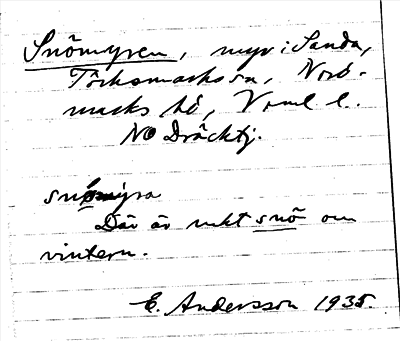 Snömyren, myr i Sanda,
Töcksmarks sn, Nord-
marks hd, Vrml l.
NO Dräcktj.
snömýra
Där är mkt snö om
vintern.
E. Andersson 1935.